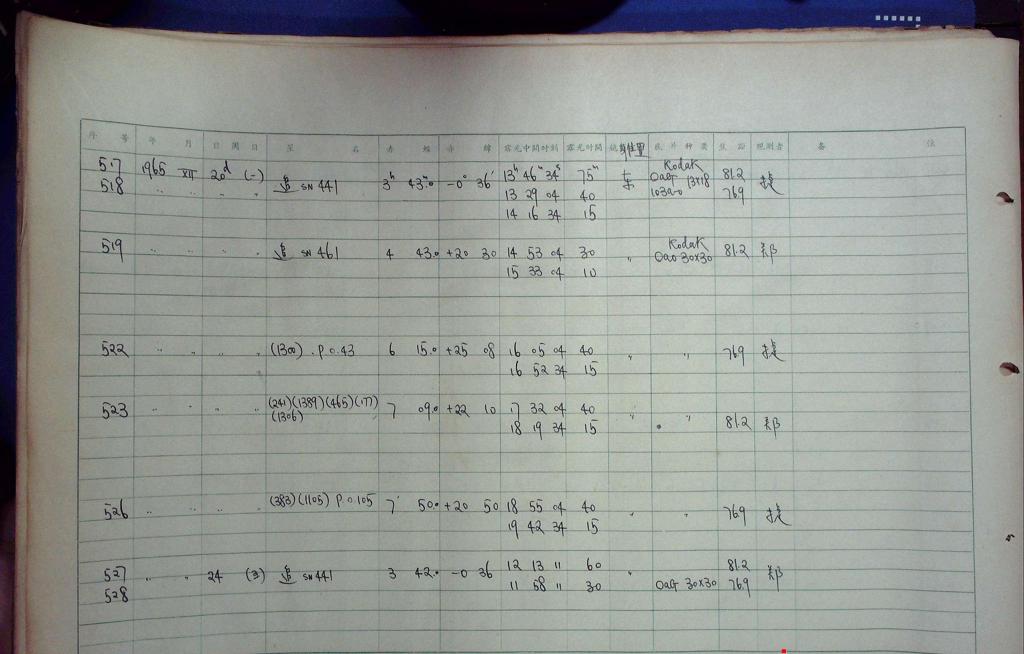 序 号 年 月 日 周日 星 名 赤 经 赤 纬 露光中间时刻 露光时间 镜身位置 底片种类 焦 距 观测者 备 注
517 1965 XII 20ᵈ (-) SN 441 3ʰ 43ᵐ.0 -0° 36′ 13ʰ 46ᵐ 34ˢ 75ᵐ 东 Kodak OaG 13×18 81.2
518 〃 〃 〃 〃 13 29 04 40 103aO 76.9
14 16 34 15
519 〃 〃 〃 〃 SN 461 4 43.0 +20 30 14 53 04 30 〃 Kodak OaO 30×30 81.2 郑
15 33 04 10
522 〃 〃 〃 〃 (1300) . P.O.43 6 15.0 +25 08 16 05 04 40 〃 〃 769
16 52 34 15
523 〃 〃 〃 〃 (241)(1389)(465)(177) 7 09.0 +22 10 17 32 04 40 〃 〃
(1306) 18 19 34 15 81.2 郑
526 〃 〃 〃 〃 (383)(1105) P.O.105 7 50.0 +20 50 18 55 04 40 〃 〃 769
19 42 34 15
527 〃 〃 24 (3) SN 441 3 42.0 -0 36 12 13 11 60 〃 81.2 郑
528 11 58 11 30 OaG 30×30 76.9